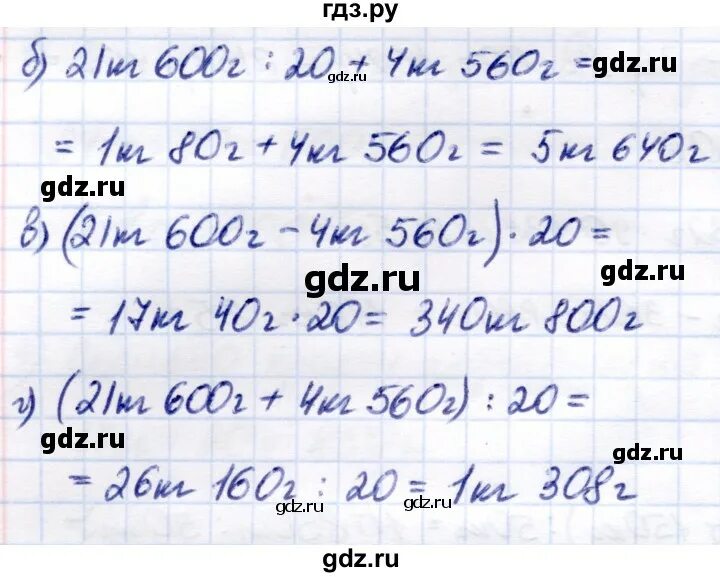 гдз.ру
б) 21кг 600г : 20 + 4кг 560г =
gdz.ru
gdz.ru
= 1кг 80г + 4кг 560г = 5кг 640г
gdz.ru
gdz.ru
в) (21кг 600г - 4кг 560г) · 20 =
gdz.ru
= 17кг 40г · 20 = 340кг 800г
г) (21кг 600г + 4кг 560г) : 20 =
gdz.ru
gdz.ru
= 26кг 160г : 20 = 1кг 308г
gdz.ru
gdz.ru